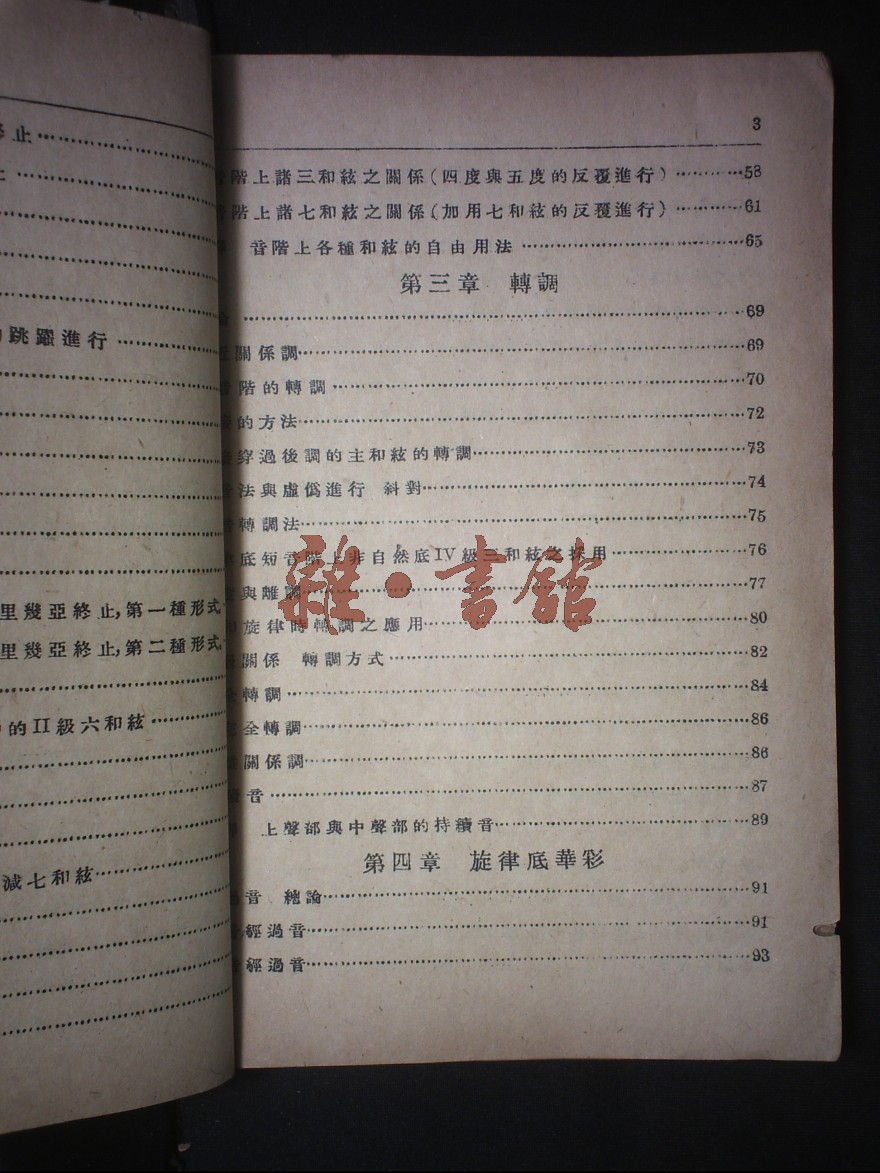 止
跳躍進行
里幾亞終止,第一種形式
里幾亞終止,第二種形式
的II級六和絃
減七和絃
3
階上諸三和絃之關係(四度與五度的反覆進行)……58
階上諸七和絃之關係(加用七和絃的反覆進行)……61
音階上各種和絃的自由用法……65
第三章 轉調
……69
關係調……69
階的轉調……70
的方法……72
穿過後調的主和絃的轉調……73
法與虛僞進行 斜對……74
轉調法……75
底短音階上非自然底IV級三和絃之採用……76
與離調……77
旋律時轉調之應用……80
關係 轉調方式……82
轉調……84
全轉調……86
關係調……86
音……87
上聲部與中聲部的持續音……89
第四章 旋律底華彩
音 總論……91
經過音……91
經過音……93
雜·書館